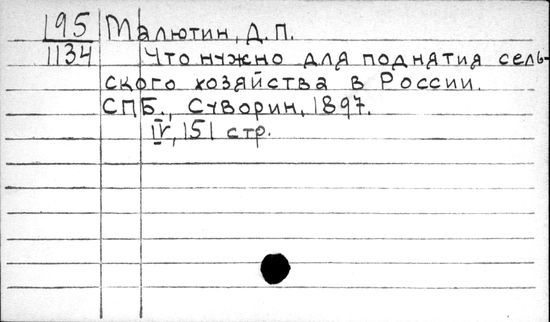 195 Малютин, Д. П.
1134 Что нужно для поднятия сель-
ского хозяйства в России.
СПБ., Суворин, 1897.
IV, 151 стр.